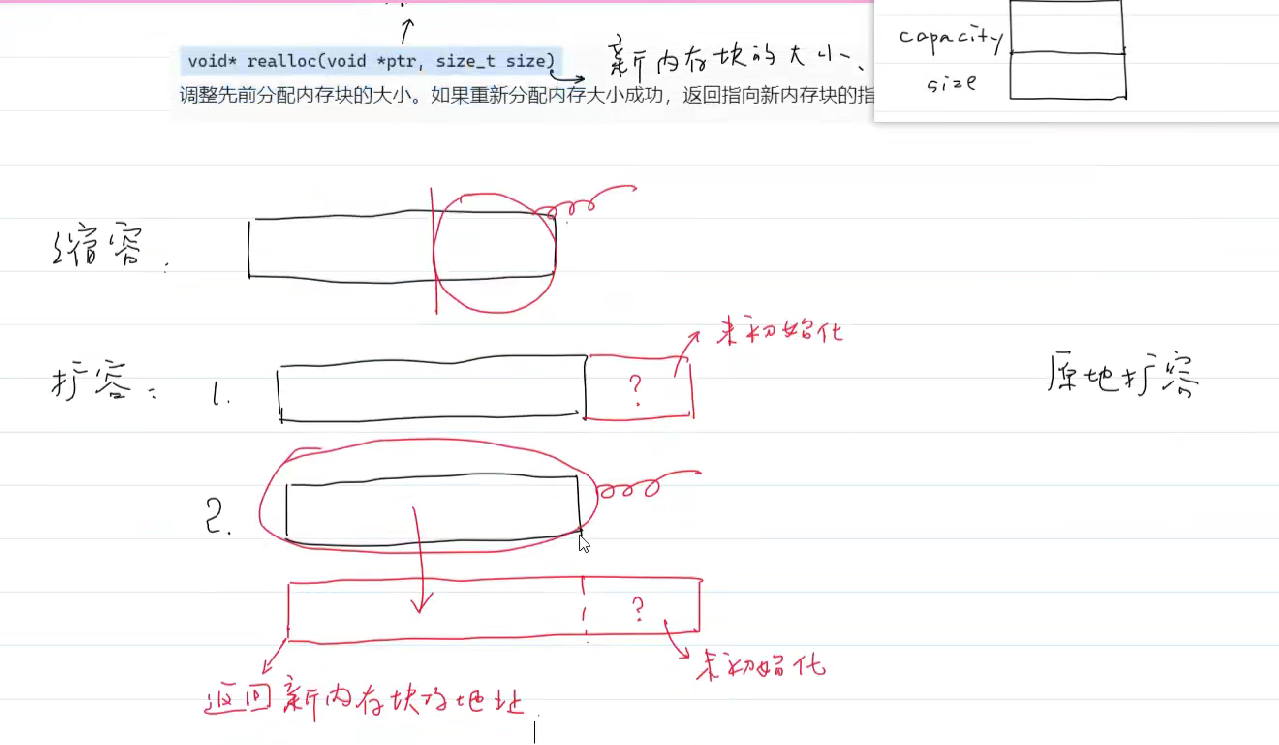 void* realloc(void *ptr, size_t size)
新内存块的大小、
capacity
size
调整先前分配内存块的大小。如果重新分配内存大小成功，返回指向新内存块的指
缩容：
未初始化
扩容：
1.
?
原地扩容
2.
?
未初始化
返回新内存块的地址.